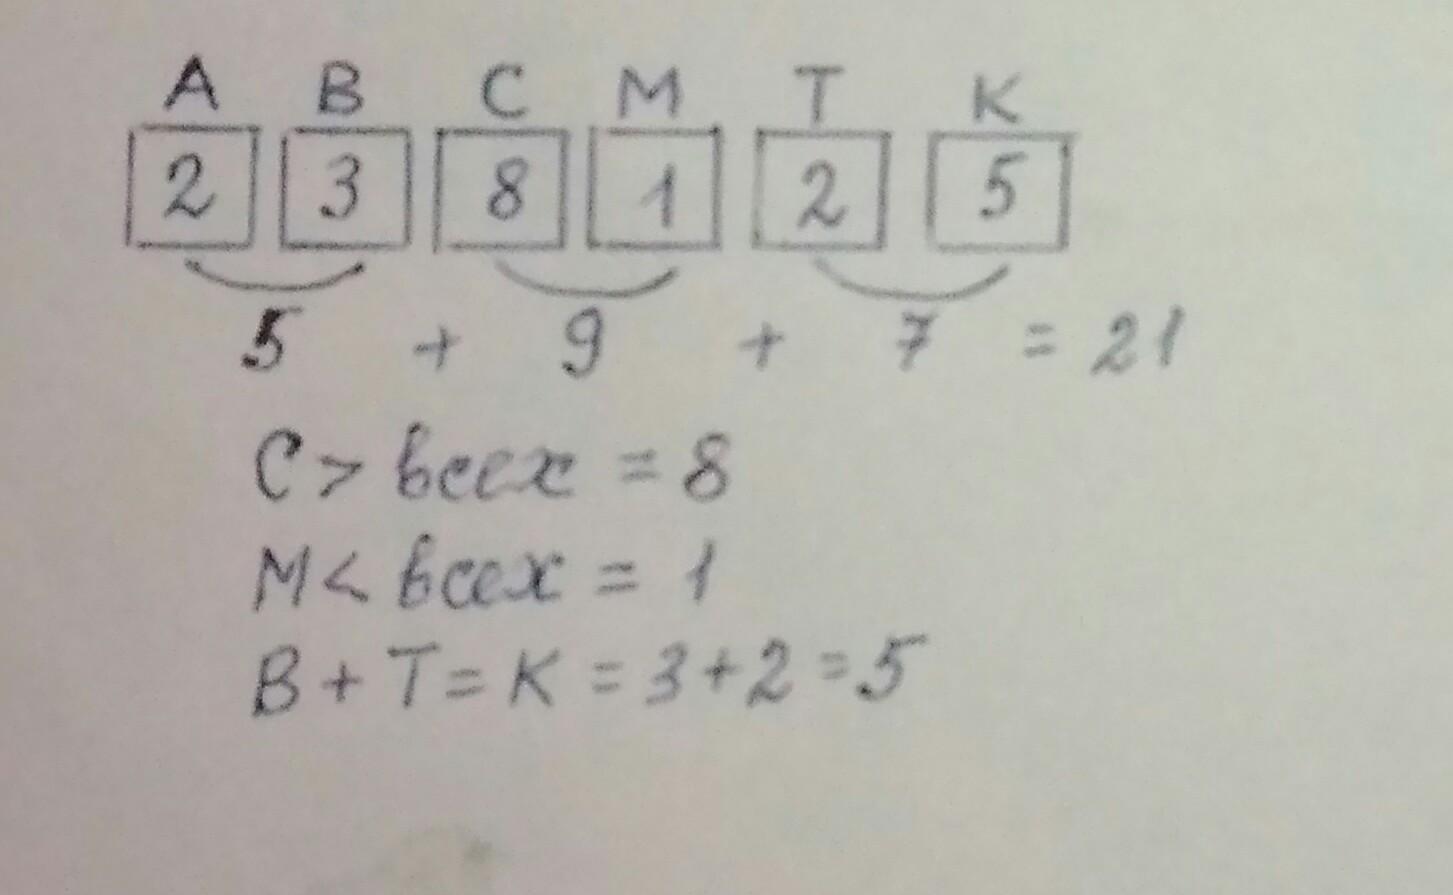 А В С М Т К
2 3 8 1 2 5
5 + 9 + 7 = 21
С > всех = 8
М < всех = 1
В + Т = К = 3 + 2 = 5